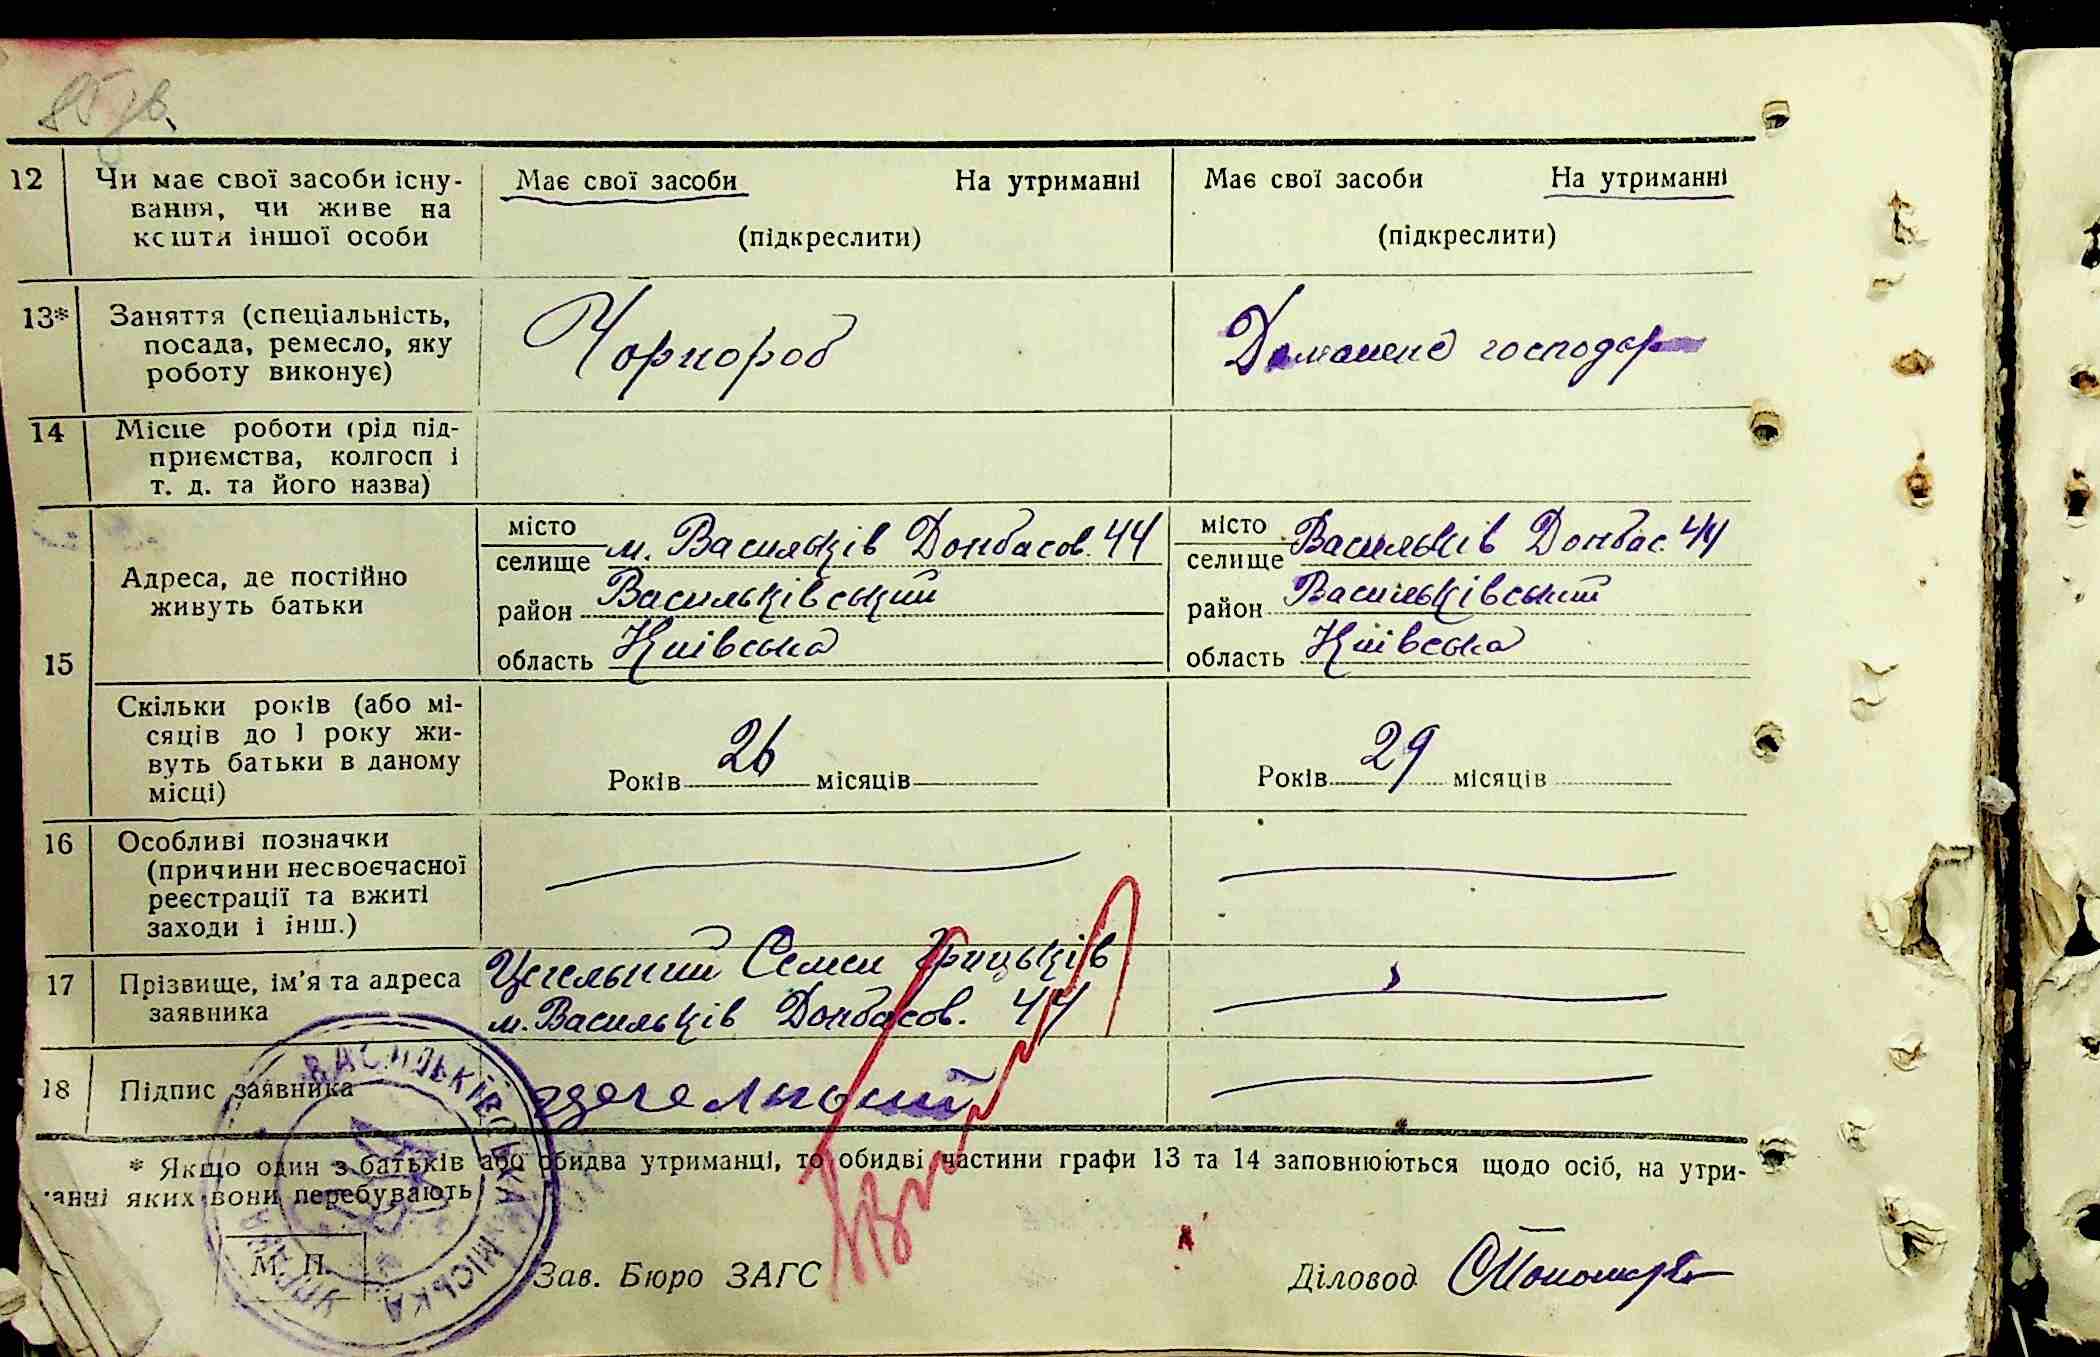 12
Чи має свої засоби існу-
вання, чи живе на
кошти іншої особи
Має свої засоби На утриманні
(підкреслити)
Має свої засоби На утриманні
(підкреслити)
13*
Заняття (спеціальність,
посада, ремесло, яку
роботу виконує)
Чорнороб
Домашнє господар
14
Місце роботи (рід під-
приємства, колгосп і
т. д. та його назва)
15
Адреса, де постійно
живуть батьки
місто
селище м. Васильків Донбасов. 44
район Васильківський
область Київська
місто
селище Васильків Донбас. 44
район Васильківський
область Київська
Скільки років (або мі-
сяців до 1 року жи-
вуть батьки в даному
місці)
Років 26 місяців
Років 29 місяців
16
Особливі позначки
(причини несвоєчасної
реєстрації та вжиті
заходи і інш.)
17
Прізвище, ім'я та адреса
заявника
Цегельний Семен Грицьків
м. Васильків Донбасов. 44
18
Підпис заявника
Цегельний
* Якщо один з батьків або обидва утриманці, то обидві частини графи 13 та 14 заповнюються щодо осіб, на утри-
манні яких вони перебувають
ВАСИЛЬКІВСЬКА МІСЬКА УПРАВА
М. П.
Зав. Бюро ЗАГС
Діловод